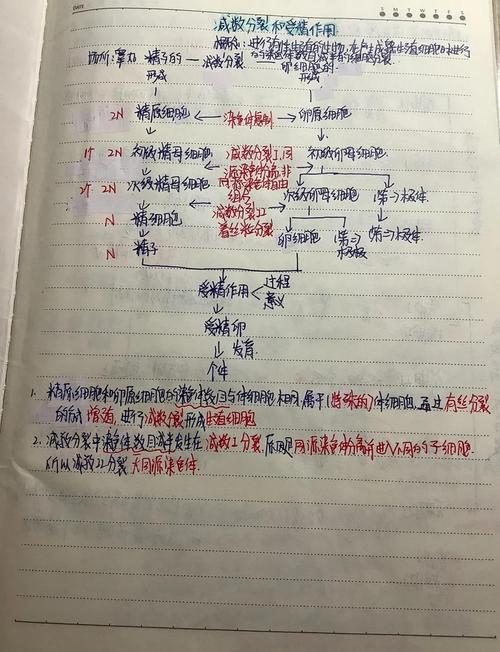 DATE
S M T W T F S
减数分裂和受精作用
概念:进行有性生殖的生物,在产生成熟生殖细胞时进行
场所:睾丸 精子的形成 — 减数分裂 的染色体数目减半的细胞分裂
卵细胞的形成
2N 精原细胞 ← 染色体复制 → 卵原细胞
1个 2N 初级精母细胞 减数分裂I,同源染色体分离,非同源染色体自由组合 初级卵母细胞
2个 2N 次级精母细胞 次级卵母细胞 (第一)极体
N 精细胞 减数分裂II 着丝粒分裂 卵细胞 (第二)极体 (第二)极体
N 精子
受精作用 过程
意义
受精卵
发育
个体
1. 精原细胞和卵原细胞的染色体数目与体细胞相同,属于(特殊的)体细胞,通过有丝分裂
的方式增殖,进行减数分裂形成生殖细胞
2. 减数分裂中染色体数目减半发生在减数I分裂.原因是同源染色体分离并进入不同的子细胞.
所以减数II分裂无同源染色体.